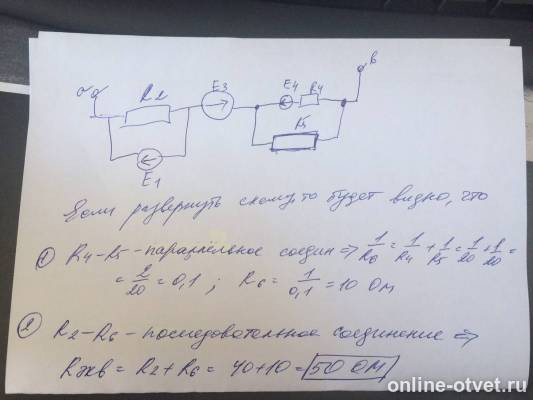 a
R2
E3
E4
R4
в
R5
E1
Если развернуть схему, то будет видно, что
① R4-R5-параллельное соедин ⇒ 1/R6 = 1/R4 + 1/R5 = 1/20 + 1/20 =
= 2/20 = 0,1 ; R6 = 1/0,1 = 10 Ом
② R2-R6-последовательное соединение ⇒
Rэкв = R2 + R6 = 40+10 = 50 Ом
online-otvet.ru